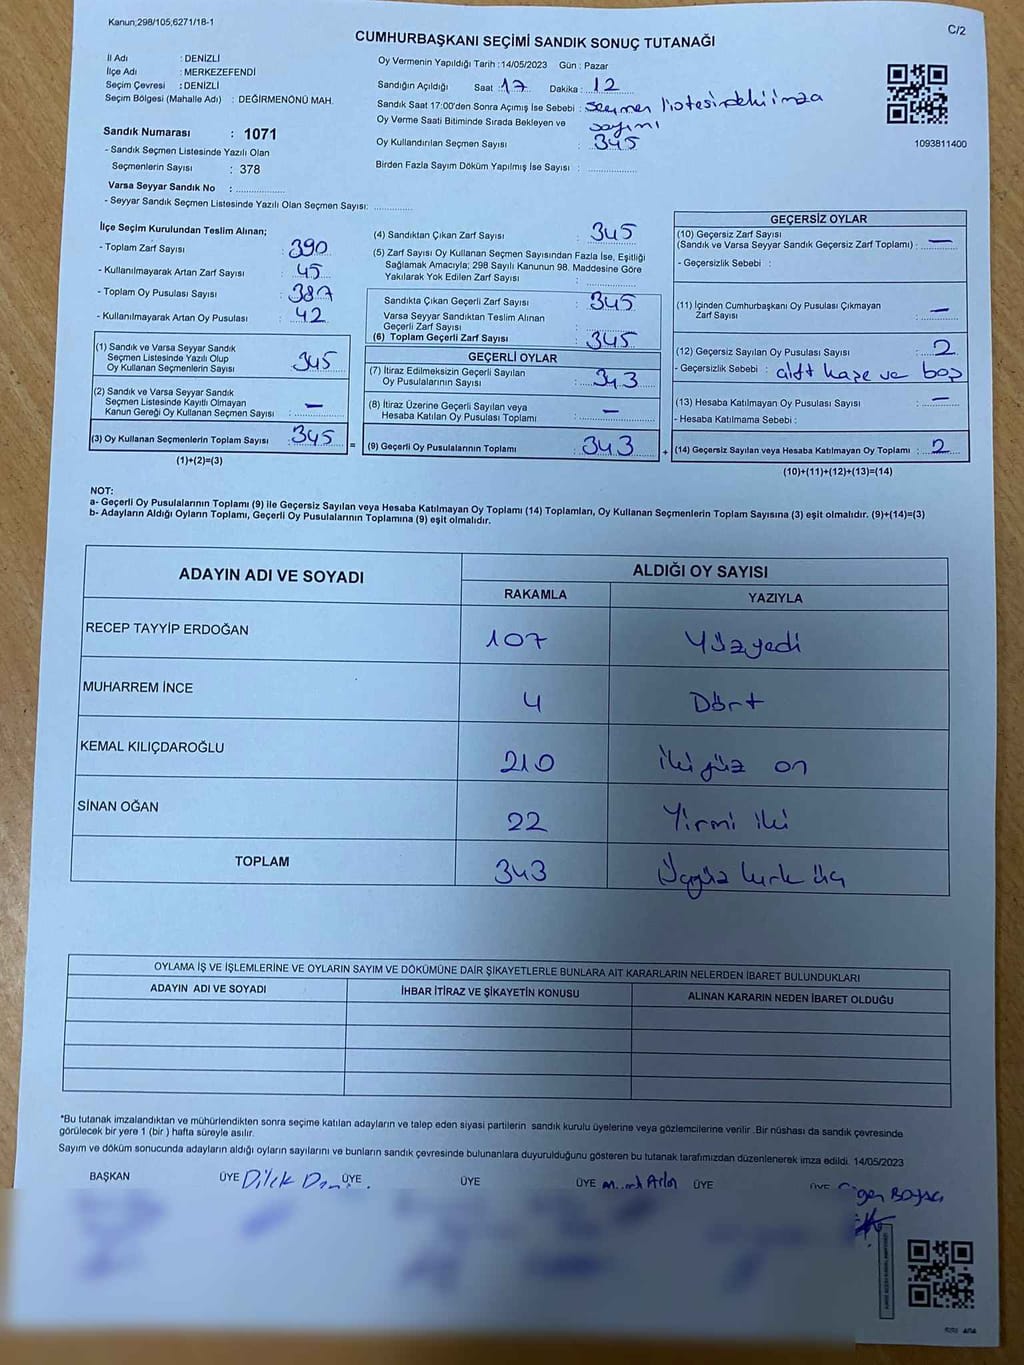 Kanun;298/105,6271/18-1
C/2
CUMHURBAŞKANI SEÇİMİ SANDIK SONUÇ TUTANAĞI
İl Adı : DENİZLİ
İlçe Adı : MERKEZEFENDİ
Seçim Çevresi : DENİZLİ
Seçim Bölgesi (Mahalle Adı) : DEĞİRMENÖNÜ MAH.
Sandık Numarası : 1071
- Sandık Seçmen Listesinde Yazılı Olan
Seçmenlerin Sayısı : 378
Varsa Seyyar Sandık No : ..............
- Seyyar Sandık Seçmen Listesinde Yazılı Olan Seçmen Sayısı: ............
Oy Vermenin Yapıldığı Tarih :14/05/2023 Gün : Pazar
Sandığın Açıldığı Saat : 17 Dakika : 12
Sandık Saat 17:00'den Sonra Açımış İse Sebebi : seçmen listesindeki imza
sayımı
Oy Verme Saati Bitiminde Sırada Bekleyen ve
Oy Kullandırılan Seçmen Sayısı : 345
Birden Fazla Sayım Döküm Yapılmış İse Sayısı : ..............
1093811400
İlçe Seçim Kurulundan Teslim Alınan;
- Toplam Zarf Sayısı : 390
- Kullanılmayarak Artan Zarf Sayısı : 45
- Toplam Oy Pusulası Sayısı : 387
- Kullanılmayarak Artan Oy Pusulası : 42
(1) Sandık ve Varsa Seyyar Sandık
Seçmen Listesinde Yazılı Olup
Oy Kullanan Seçmenlerin Sayısı : 345
(2) Sandık ve Varsa Seyyar Sandık
Seçmen Listesinde Kayıtlı Olmayan
Kanun Gereği Oy Kullanan Seçmen Sayısı : —
(3) Oy Kullanan Seçmenlerin Toplam Sayısı : 345 =
(1)+(2)=(3)
(4) Sandıktan Çıkan Zarf Sayısı : 345
(5) Zarf Sayısı Oy Kullanan Seçmen Sayısından Fazla İse, Eşitliği
Sağlamak Amacıyla; 298 Sayılı Kanunun 98. Maddesine Göre
Yakılarak Yok Edilen Zarf Sayısı : ..............
Sandıkta Çıkan Geçerli Zarf Sayısı : 345
Varsa Seyyar Sandıktan Teslim Alınan
Geçerli Zarf Sayısı : ..............
(6) Toplam Geçerli Zarf Sayısı : 345
GEÇERLİ OYLAR
(7) İtiraz Edilmeksizin Geçerli Sayılan
Oy Pusulalarının Sayısı : 343
(8) İtiraz Üzerine Geçerli Sayılan veya
Hesaba Katılan Oy Pusulası Toplamı : —
(9) Geçerli Oy Pusulalarının Toplamı : 343 +
GEÇERSİZ OYLAR
(10) Geçersiz Zarf Sayısı
(Sandık ve Varsa Seyyar Sandık Geçersiz Zarf Toplamı) : —
- Geçersizlik Sebebi :
(11) İçinden Cumhurbaşkanı Oy Pusulası Çıkmayan
Zarf Sayısı : —
(12) Geçersiz Sayılan Oy Pusulası Sayısı : 2
- Geçersizlik Sebebi : çift kaşe ve boş
(13) Hesaba Katılmayan Oy Pusulası Sayısı : —
- Hesaba Katılmama Sebebi :
(14) Geçersiz Sayılan veya Hesaba Katılmayan Oy Toplamı : 2
(10)+(11)+(12)+(13)=(14)
NOT:
a- Geçerli Oy Pusulalarının Toplamı (9) ile Geçersiz Sayılan veya Hesaba Katılmayan Oy Toplamı (14) Toplamları, Oy Kullanan Seçmenlerin Toplam Sayısına (3) eşit olmalıdır. (9)+(14)=(3)
b- Adayların Aldığı Oyların Toplamı, Geçerli Oy Pusulalarının Toplamına (9) eşit olmalıdır.
ADAYIN ADI VE SOYADI
ALDIĞI OY SAYISI
RAKAMLA YAZIYLA
RECEP TAYYİP ERDOĞAN 107 Yüzyedi
MUHARREM İNCE 4 Dört
KEMAL KILIÇDAROĞLU 210 iki yüz on
SİNAN OĞAN 22 Yirmi iki
TOPLAM 343 Üçyüz kırk üç
OYLAMA İŞ VE İŞLEMLERİNE VE OYLARIN SAYIM VE DÖKÜMÜNE DAİR ŞİKAYETLERLE BUNLARA AİT KARARLARIN NELERDEN İBARET BULUNDUKLARI
ADAYIN ADI VE SOYADI İHBAR İTİRAZ VE ŞİKAYETİN KONUSU ALINAN KARARIN NEDEN İBARET OLDUĞU
*Bu tutanak imzalandıktan ve mühürlendikten sonra seçime katılan adayların ve talep eden siyasi partilerin sandık kurulu üyelerine veya gözlemcilerine verilir .Bir nüshası da sandık çevresinde
görülecek bir yere 1 (bir ) hafta süreyle asılır.
Sayım ve döküm sonucunda adayların aldığı oyların sayılarını ve bunların sandık çevresinde bulunanlara duyurulduğunu gösteren bu tutanak tarafımızdan düzenlenerek imza edildi. 14/05/2023
BAŞKAN ÜYE Dilek ÜYE ÜYE ÜYE ÜYE ÜYE